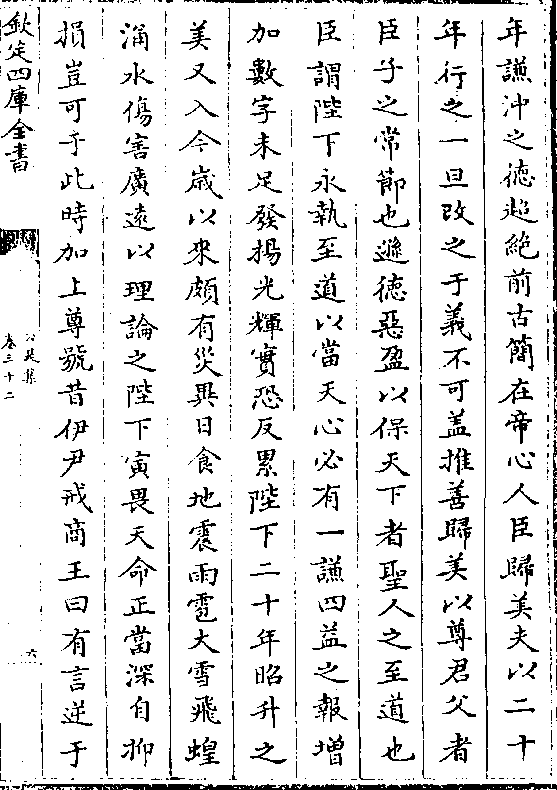 年謙沖之徳超絶前古簡在帝心人臣歸美夫以二十
年行之一旦改之于義不可盖推善歸美以尊君父者
臣子之常節也遜徳惡盈以保天下者聖人之至道也
臣謂陛下永執至道以當天心必有一謙四益之報増
加數字未足發揚光輝實恐反累陛下二十年昭升之
美又入今歳以來頗有災異日食地震雨雹大雪飛蝗
涌水傷害廣逺以理論之陛下寅畏天命正當深自抑
損豈可于此時加上尊號昔伊尹戒商王曰有言逆于
欽定四庫全書
公是集
卷三十二
六